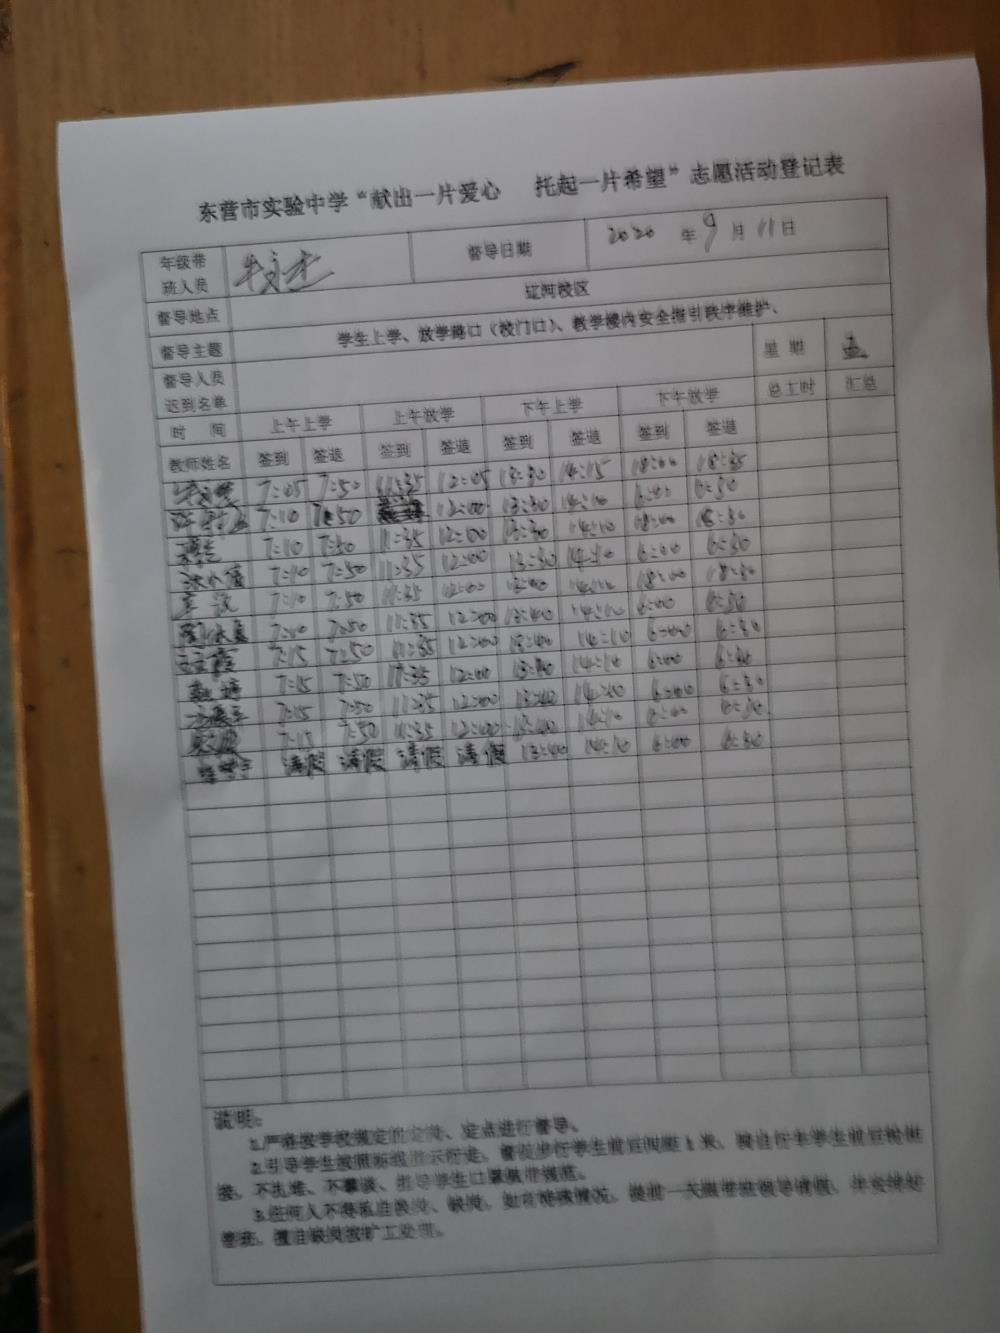 东营市实验中学“献出一片爱心 托起一片希望”志愿活动登记表
年级带班人员 督导日期 2020 年 9 月 11 日
督导地点 辽河校区
督导主题 学生上学、放学路口（校门口）、教学楼内安全指引秩序维护、
督导人员迟到名单 星期 五
时 间 上午上学 上午放学 下午上学 下午放学 总工时 汇总
教师姓名 签到 签退 签到 签退 签到 签退 签到 签退
7:05 7:50 11:35 12:05 13:30 14:15 18:00 18:35
7:10 7:50 12:00 13:30 14:10 6:00 6:30
7:10 7:50 11:35 12:00 13:30 14:10 18:00 18:30
7:10 7:50 11:35 12:00 13:30 14:10 6:00 6:30
7:10 7:50 11:35 12:00 14:10 18:00 18:30
7:10 7:50 11:35 12:00 13:40 14:10 6:00 6:30
7:15 7:50 11:35 12:00 13:40 14:10 6:00 6:30
7:15 7:50 11:35 12:00 13:40 14:10 6:00 6:30
7:15 7:50 11:35 12:00 13:40 14:10 6:00 6:30
7:15 7:50 11:35 12:00 13:40 14:10 6:00 6:30
请假 请假 请假 请假 13:40 14:10 6:00 6:30
说明：
1.严格按学校规定的定岗、定点进行督导。
2.引导学生按照标线指示行走，督促步行学生前后间距1米，骑自行车学生前后
不扎堆、不攀谈、指导学生口罩佩戴规范。
3.任何人不得私自换岗、缺岗，如有特殊情况，提前一天跟带班领导请假，并安排好
擅自缺岗按旷工处理。